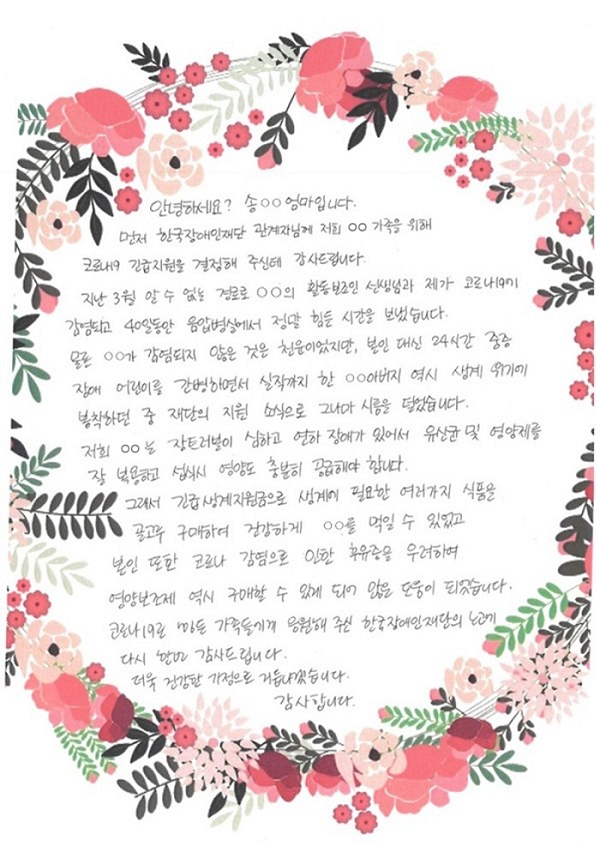 안녕하세요? 송○○엄마입니다.
먼저 한국장애인재단 관계자님께 저희 ○○ 가족을 위해
코로나19 긴급지원을 결정해 주신데 감사드립니다.
지난 3월 알 수 없는 경로로 ○○의 활동보조인 선생님과 제가 코로나19에
감염되고 40일동안 음압병실에서 정말 힘든 시간을 보냈습니다.
물론 ○○가 감염되지 않은 것은 천운이었지만, 본인 대신 24시간 중증
장애 어린이를 간병하면서 실직까지 한 ○○아버지 역시 생계 위기에
봉착하던 중 재단의 지원 소식으로 그나마 시름을 덜었습니다.
저희 ○○는 장트러블이 심하고 연하 장애가 있어서 유산균 및 영양제를
잘 복용하고 섭식시 영양도 충분히 공급해야 합니다.
그래서 긴급생계지원금으로 생계에 필요한 여러가지 식품을
골고루 구매하여 건강하게 ○○를 먹일 수 있었고
본인 또한 코로나 감염으로 인한 후유증을 우려하여
영양보조제 역시 구매할 수 있게 되어 많은 도움이 되었습니다.
코로나19로 힘든 가족들에게 응원해 주신 한국장애인재단의 노고에
다시 한번 감사드립니다.
더욱 건강한 가정으로 거듭나겠습니다.
감사합니다.